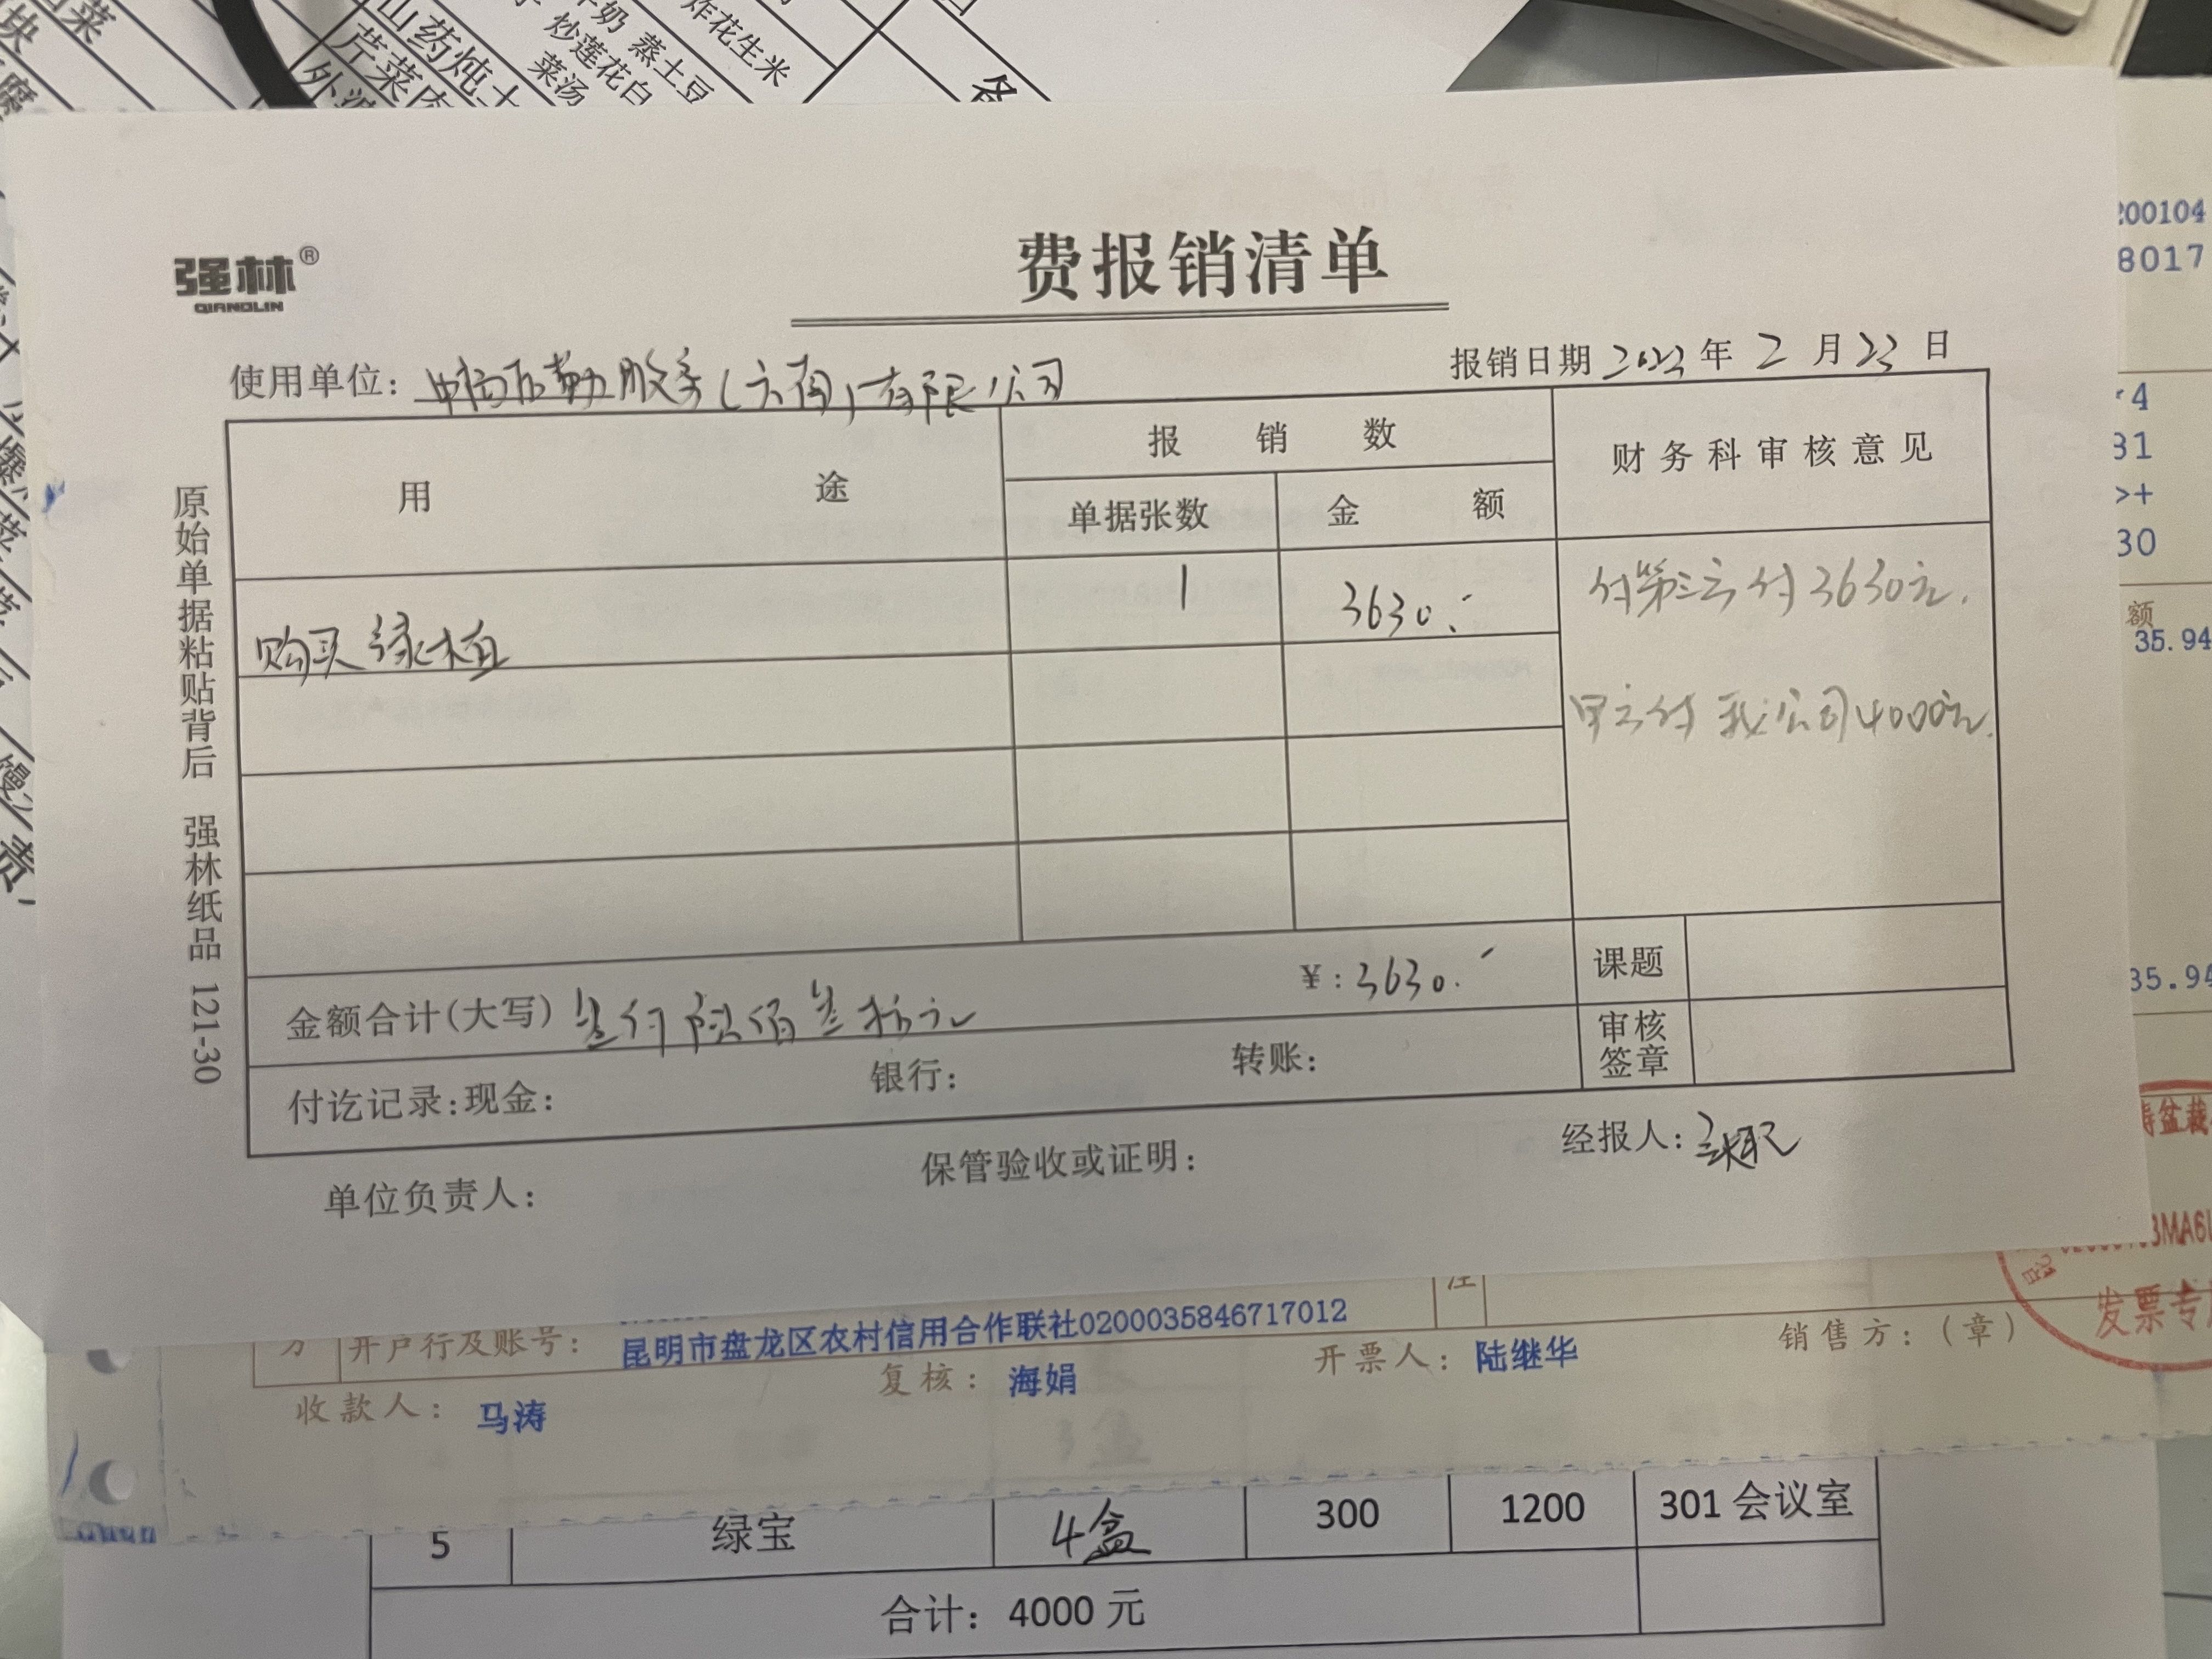 炸花生米
牛奶 蒸土豆
炒莲花白
菜汤
山药炖
芹菜肉
强林®
QIANGLIN
费报销清单
使用单位：中 股务（云南）有限公司
报销日期 2023 年 2 月 23 日
用 途
报 销 数
财务科审核意见
单据张数
金 额
购买绿植
1
3630.-
付第三方付3630元.
甲方付我公司4000元.
金额合计(大写) 叁仟陆佰叁拾元
¥：3630.-
课题
付讫记录：现金：
银行：
转账：
审核
签章
单位负责人：
保管验收或证明：
经报人：
原始单据粘贴背后 强林纸品 121-30
200104
8017
31
>+
30
额
35.94
35.94
盆栽
发票专
开户行及账号：
昆明市盘龙区农村信用合作联社0200035846717012
收款人：马涛
复核：海娟
开票人：陆继华
销售方：（章）
5 绿宝 4盆 300 1200 301 会议室
合计：4000 元